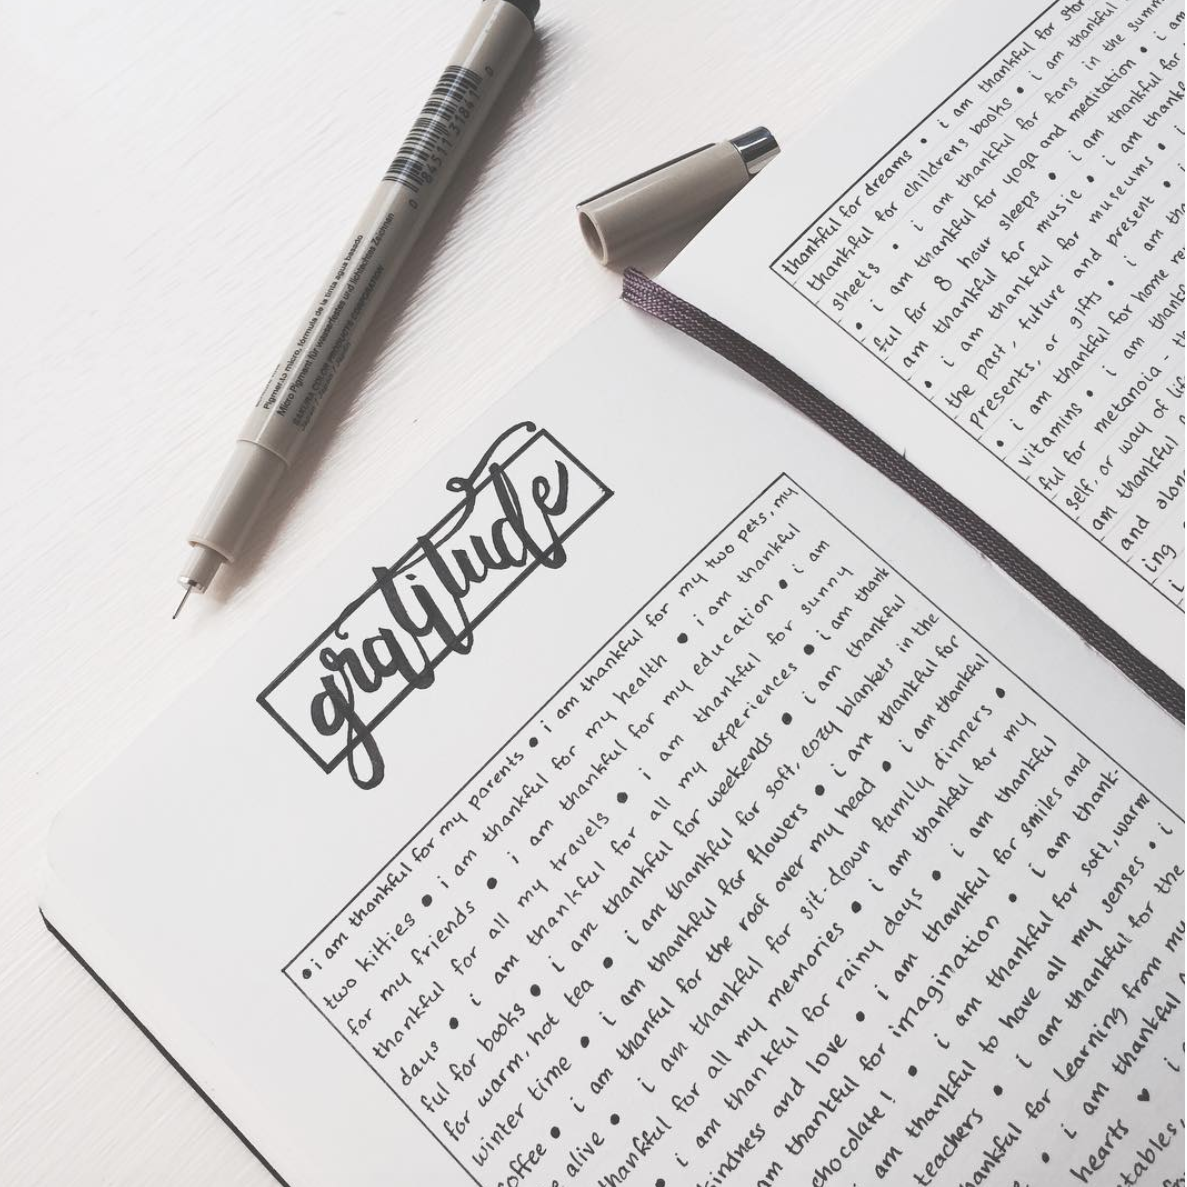 Pigmento micro, fórmula de la tinta agua basado
Micro Pigment für wasserfestes und lichtechtes Zeichnen
SAKURA COLOR PRODUCTS CORPORATION
gratitude
• i am thankful for my parents • i am thankful for my two pets, my
two kitties • i am thankful for my health • i am thankful
for my friends • i am thankful for my education • i am
thankful for all my travels • i am thankful for sunny
days • i am thankful for all my experiences • i am thank
ful for books • i am thankful for weekends • i am thankful
for warm, hot tea • i am thankful for soft, cozy blankets in the
winter time • i am thankful for flowers • i am thankful for
coffee • i am thanful for the roof over my head • i am thankful
alive • i am thankful for sit-down family dinners •
thankful for all my memories • i am thankful for my
• i am thankful for rainy days • i am thankful
kindness and love • i am thankful for smiles and
am thankful for imagination • i am thank-
chocolate! • i am thankful for soft, warm
am thankful to have all my senses • i
teachers • i am thankful for the
thankful for learning from my
• i am thankful
hearts ♥ i
thankful for dreams • i am thankful for
thankful for childrens books • i am thankful
sheets • i am thankful for fans in the
• i am thankful for yoga and meditation • i am
ful for 8 hour sleeps • i am thankful for
am thankful for music • i am
• i am thankful for museums •
the past, future and present • i
presents, or gifts • i am
• i am thankful for home
vitamins • i am
ful for metanoia -
self, or way of
am thankful
and
ing
i